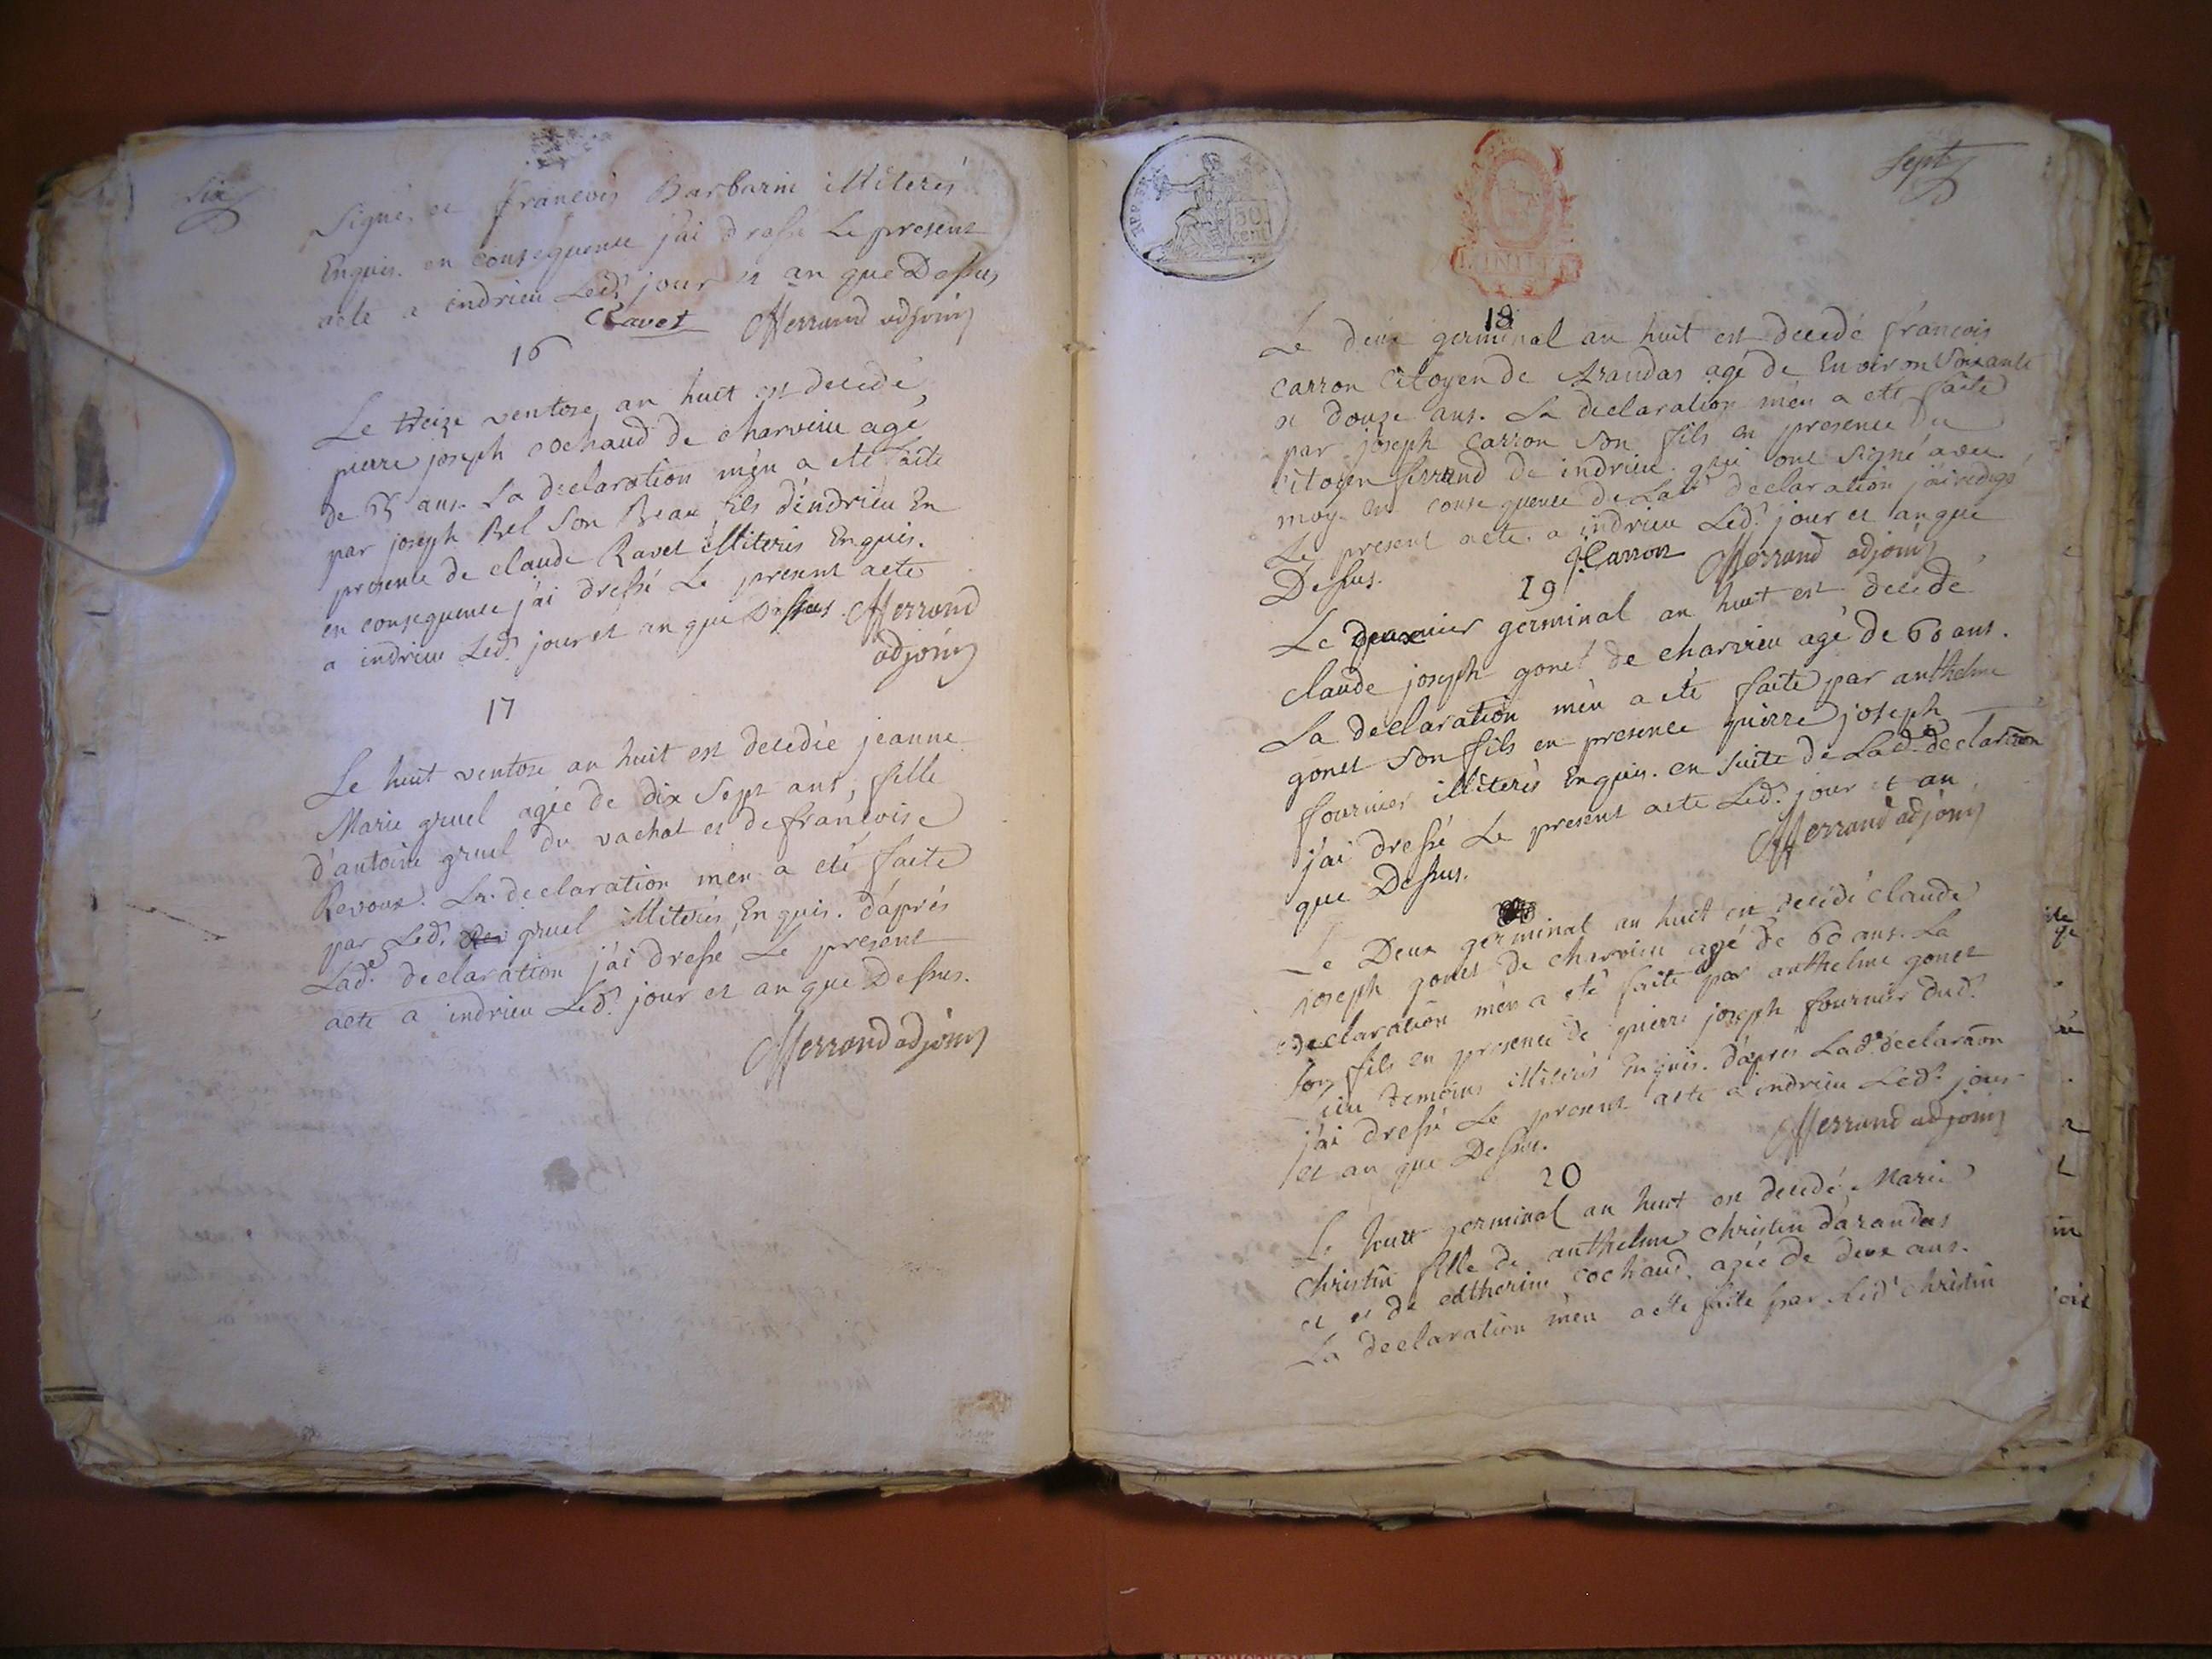 six
signé, et francois Barbarin illiterés
Enquis. en consequence j'ai dressé Le present
acte a indrieu Led.t jour et an que Dessus
CRavet Merrand adjoint
16
Le treize ventose an huit est decedé,
pierre joseph cochaud de charvieu agé
de 75 ans. La declaration m'en a eté faite
par joseph Bel Son Beau fils d'indrieu En
presence de claude Ravet illiterés Enquis.
en consequence j'ai dressé Le present acte
a indrieu Led.t jour et an que Dessus. Merrand
adjoint
17
Le huit ventose an huit est decedée jeanne
Marie gruel agée de dix Sept ans, fille
d'antoine gruel du vachat et de francoise
Revoux. La declaration m'en a eté faite
par Led.t gruel illiterés Enquis. d'aprés
Lad.e declaration j'ai dressé Le present
acte a indrieu Led.t jour et an que Dessus.
Merrand adjoint
sept
50
cent
18
Le deux germinal an huit est decedé francois
carron Citoyen de Arandas agé de Environ Soixante
et douze ans. La declaration m'en a eté faite
par joseph carron Son fils en presence Du
citoyen ferrand de indrieu qui ont Signé avec
moy. en consequence de Lad.e declaration j'ai redigé
Le present acte a indrieu Led.t jour et an que
Dessus. j. Carron Merrand adjoint
19
Le deux germinal an huit est decedé
claude joseph gonet de charvieu agé de 60 ans.
La declaration m'en a eté faite par anthelme
gonet Son fils en presence pierre joseph
fournier illiterés Enquis. en suite de Lad.e declaration
j'ai dressé Le present acte Led.t jour et an
que Dessus. Merrand adjoint
Le Deux germinal an huit est decedé claude
joseph gonet de charvieu agé de 60 ans. La
declaration m'en a eté faite par anthelme gonet
son fils en presence de pierre joseph fournier dud.t
lieu temoins illiterés Enquis. d'apres Lad.e declaration
j'ai dressé Le present acte a indrieu Led.t jour
et an que Dessus. Merrand adjoint
20
Le huit germinal an huit est decedé Marie
christin fille de anthelme christin d'arandas
et et de catherine cochaud. agée de deux ans.
La declaration m'en a eté faite par Led.t christin